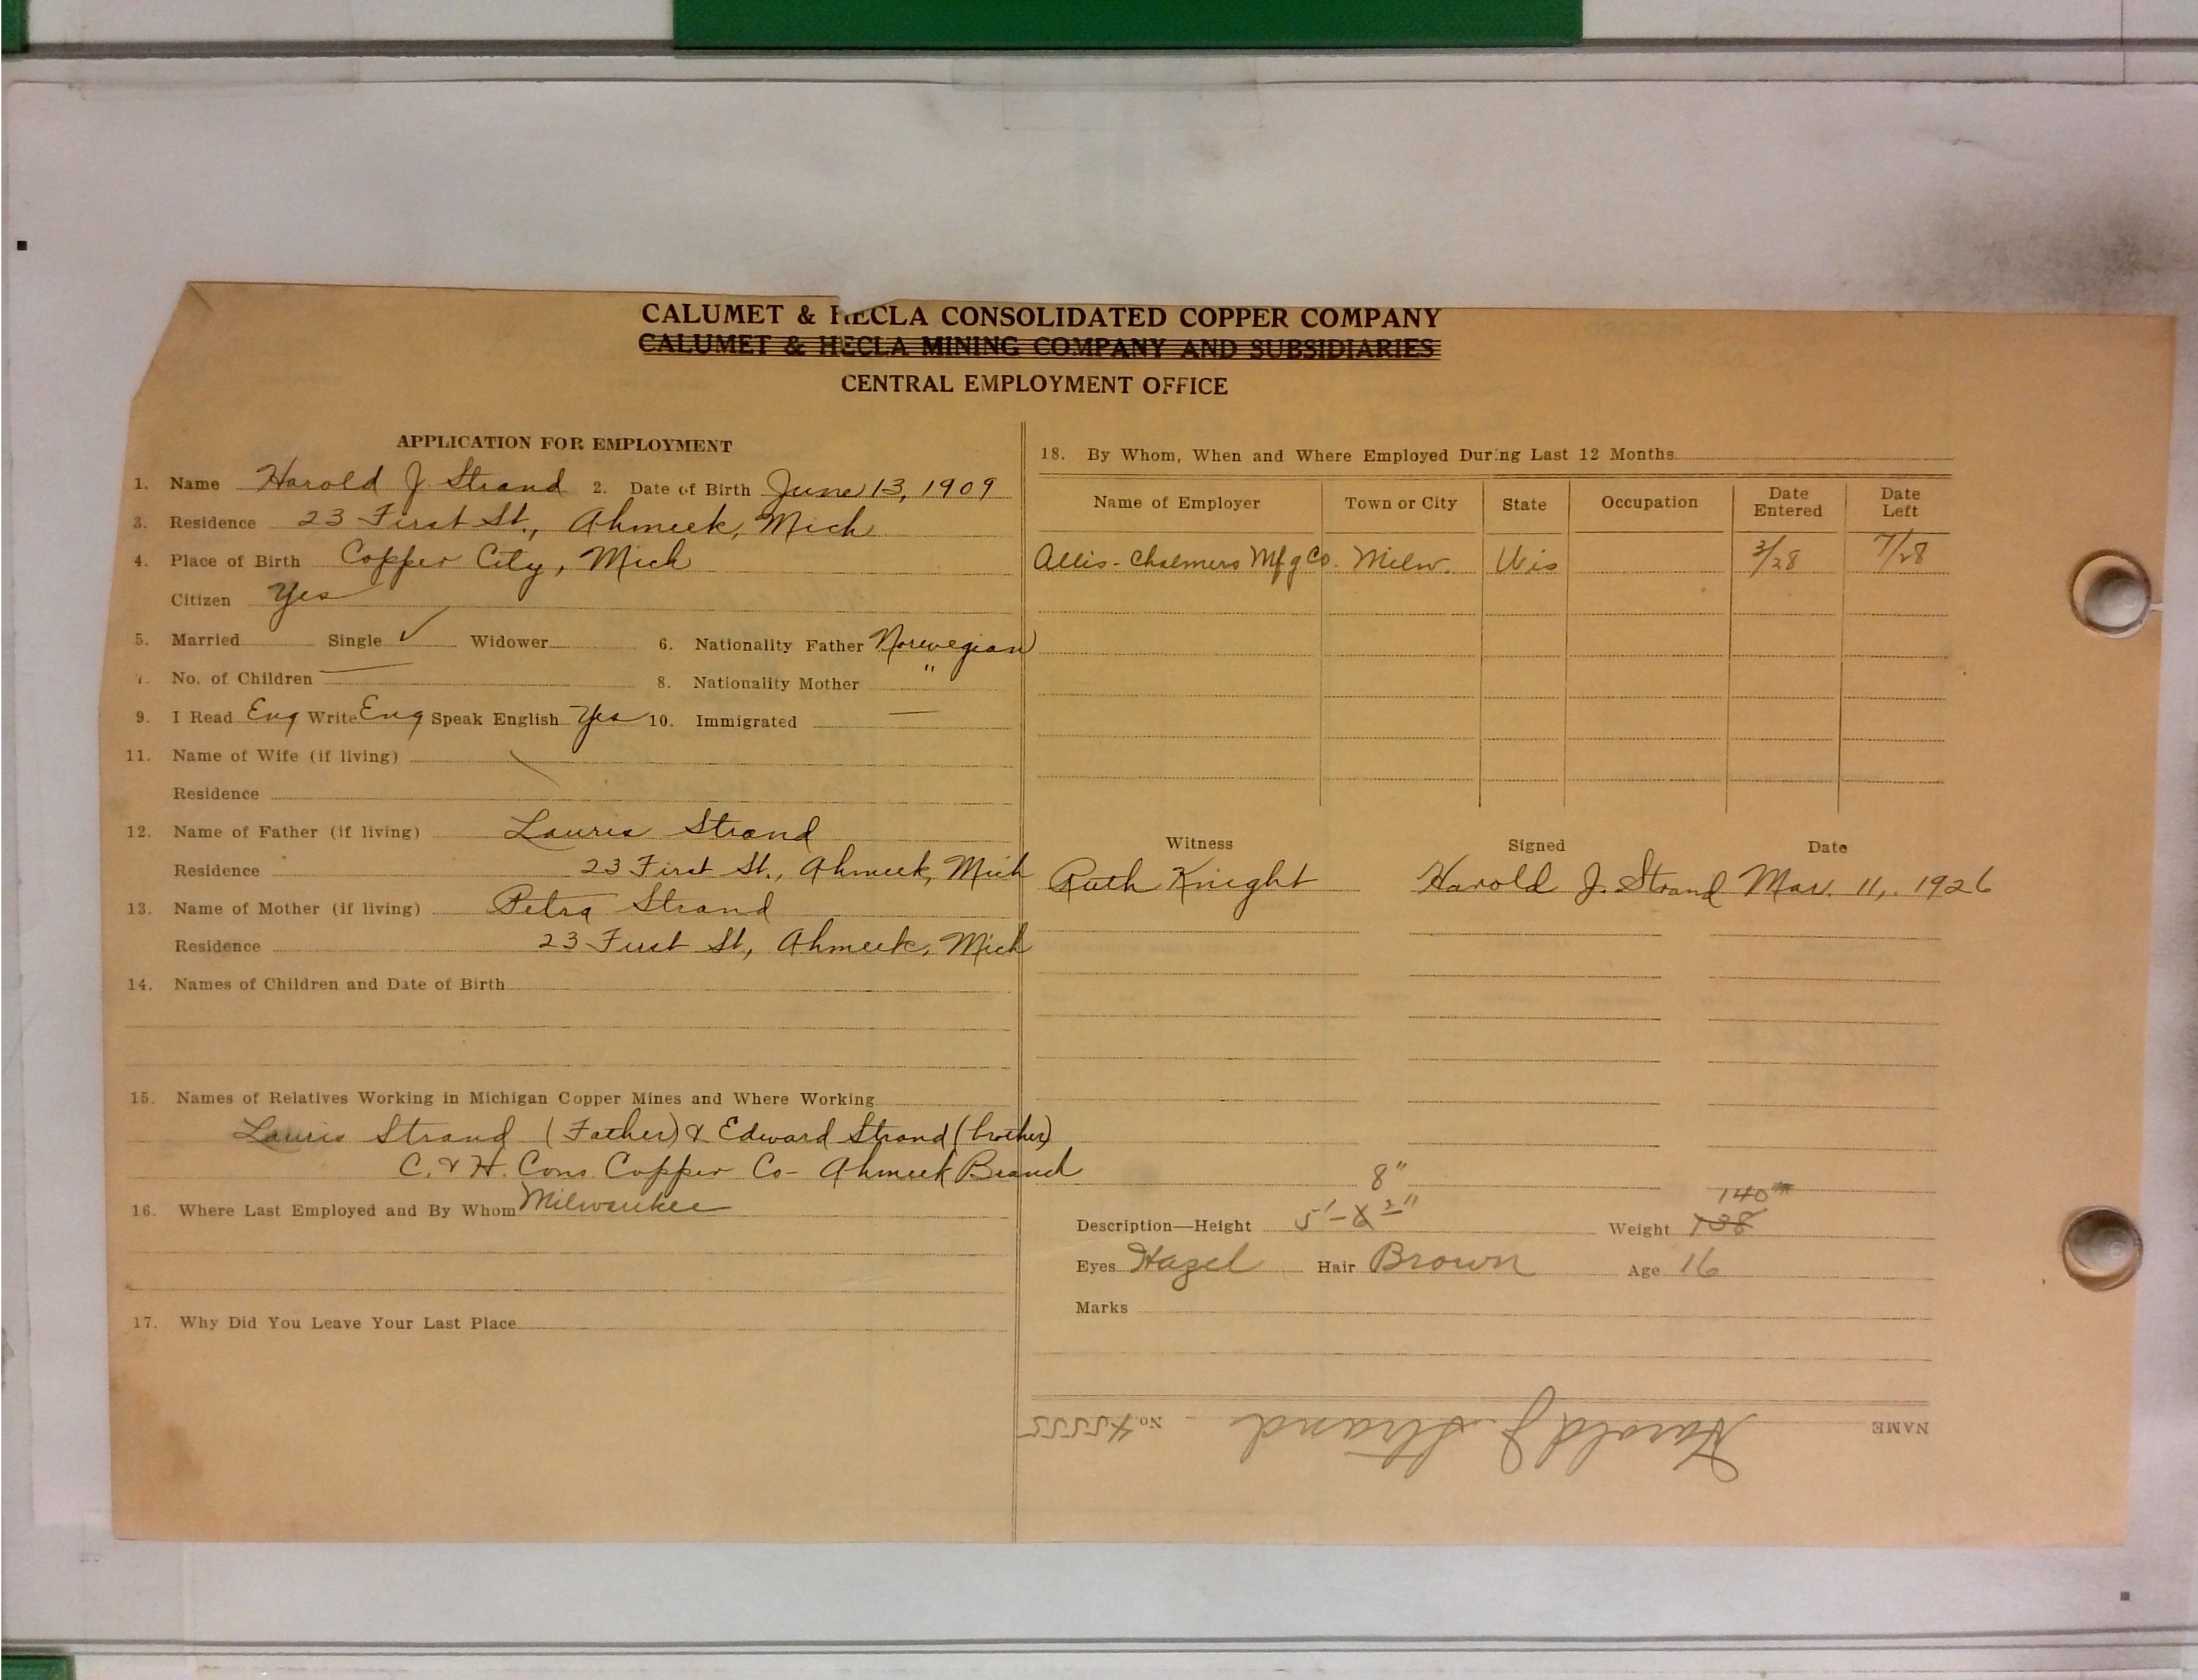 CALUMET & HECLA CONSOLIDATED COPPER COMPANY
CALUMET & HECLA MINING COMPANY AND SUBSIDIARIES
CENTRAL EMPLOYMENT OFFICE
APPLICATION FOR EMPLOYMENT
1. Name Harold J Strand 2. Date of Birth June 13, 1909
3. Residence 23 First St., Ahmeek, Mich
4. Place of Birth Copper City, Mich
Citizen Yes
5. Married Single ✓ Widower 6. Nationality Father Norwegian
7. No. of Children — 8. Nationality Mother "
9. I Read Eng Write Eng Speak English Yes 10. Immigrated —
11. Name of Wife (if living)
Residence
12. Name of Father (if living) Lauris Strand
Residence 23 First St., Ahmeek, Mich
13. Name of Mother (if living) Petra Strand
Residence 23 First St, Ahmeek, Mich
14. Names of Children and Date of Birth
15. Names of Relatives Working in Michigan Copper Mines and Where Working
Lauris Strand (Father) & Edward Strand (brother)
C. & H. Cons. Copper Co - Ahmeek Branch
16. Where Last Employed and By Whom Milwaukee
17. Why Did You Leave Your Last Place
18. By Whom, When and Where Employed During Last 12 Months
Name of Employer Town or City State Occupation Date Entered Date Left
Allis-Chalmers Mfg Co. Milw. Wis 3/28 7/28
Witness Signed Date
Ruth Knight Harold J. Strand Mar. 11, 1926
8"
140
Description—Height 5'-6 2" Weight 138
Eyes Hazel Hair Brown Age 16
Marks
NAME Harold J. Strand No. 45555